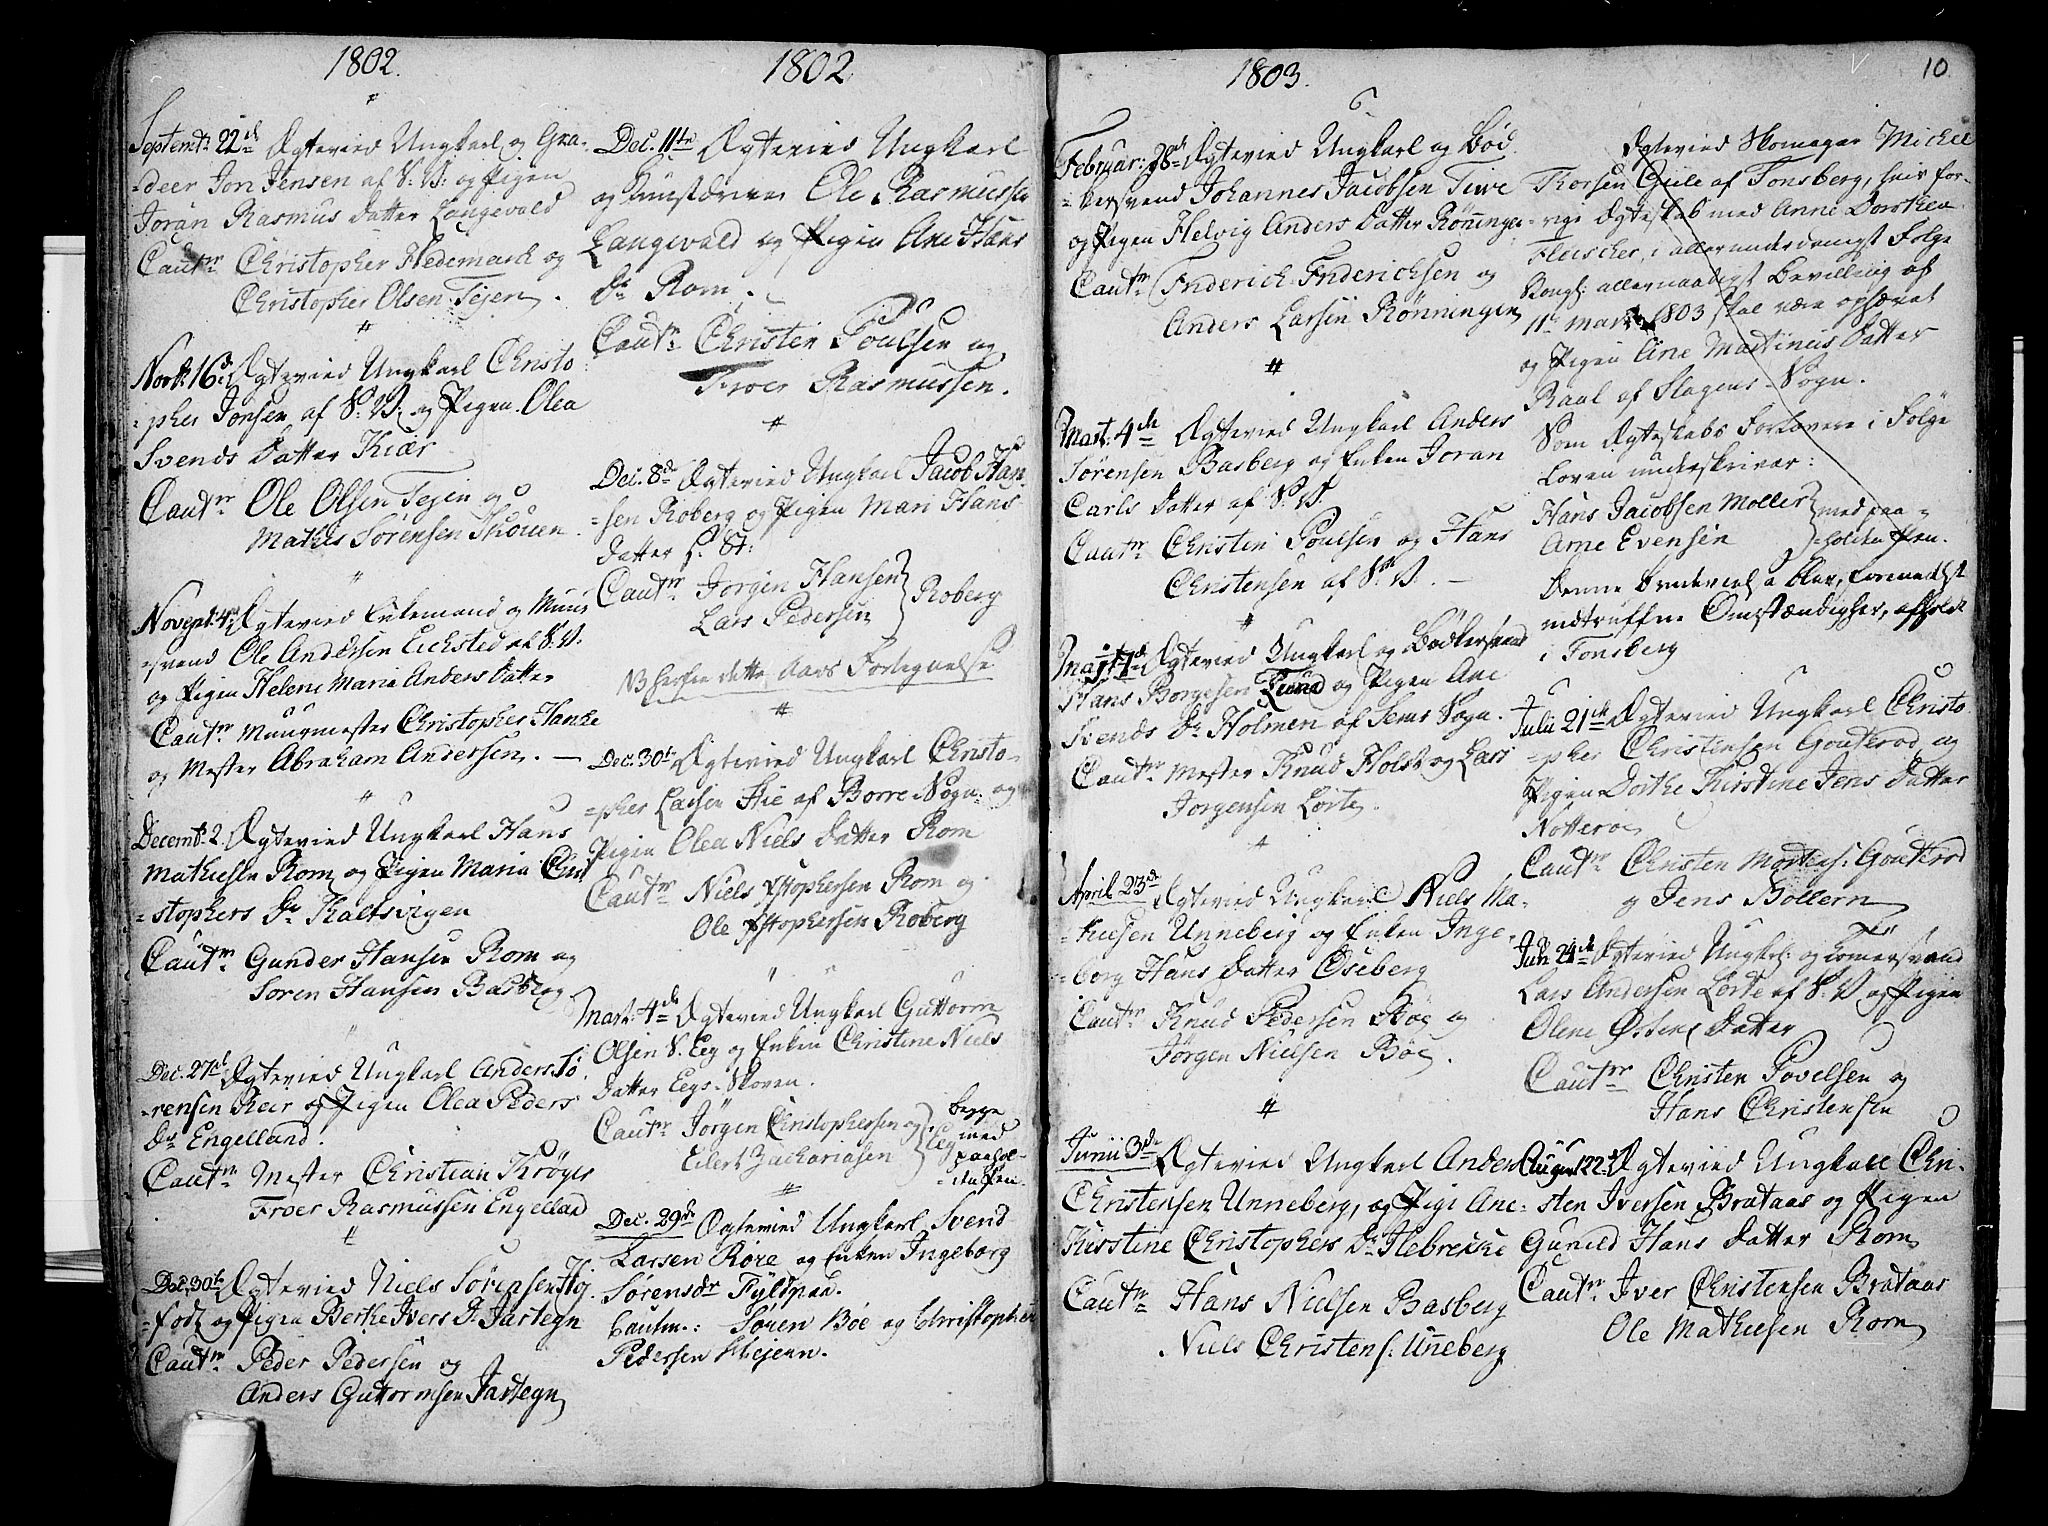 1802.
Septembr: 22de Ægtevied Ungkarl og Gra-
=deer Jon Jensen af S: V: og Pigen
Joran Rasmus Datter Langevald
Cautnr Christopher Hedemarck og
Christopher Olsen Tejen.
Novb: 16de Ægtevied Ungkarl Christo
=pher Jonsen af S: V: og Pigen Olea
Svends Datter Kiær
Cautnr Ole Olsen Tejen og
Mathis Sørensen Skouen.
Novemb: 4de Ægtevied Enkemand og Muur
=svend Ole Andersen Eichsted af S. V.
og Pigen Helene Maria Anders Datter
Cautnr Muurmester Christopher Hancke
og Mester Abraham Andersen. —
Decembr: 2. Ægtevied Ungkarl Hans
Mathiesen Rom og Pigen Maria Chri
=stophers Dr Kaltsvigen
Cautnr Gunder Hansen Rom og
Søren Hansen Basberg
Dec. 27de Ægtevied Ungkarl Anders Sø
=rensen Keir og Pigen Olea Peders
Dr Engelland.
Cautnr Mester Christian Krøger
Froer Rasmussen Engelland
Dec. 30te Ægtevied Niels Sørensen Høj
=fodt og Pigen Berthe Ivers Dr Jartegn
Cautnr Peder Pedersen og
Anders Guttormsen Jartegn
1802
Dec. 11te Ægtevied Ungkarl
og Huustømmer Ole Rasmussen
Langevald og Pigen Ane Hans
Dr Rom.
Cautnr Christen Poulsen og
Froer Rasmussen.
Dec. 8de Ægtevied Ungkarl Jacob Han
=sen Roberg og Pigen Mari Hans
Datter S. St:
Cautnr Jørgen Hansen
Lars Pedersen } Roberg
NB herfra dette Aars Fortegnelse
Dec. 30te Ægtevied Ungkarl Christo-
=pher Larsen Hie af Borre Sogn og
Pigen Olea Niels Datter Rom
Cautnr Niels Xstophersen Rom og
Ole Xstophersen Roberg
Mart: 4de Ægtevied Ungkarl Guttorm
Olsen S. Eeg og Enken Christine Niels
Datter Eegs-Skoven.
Cautnr Jørgen Christophersen og
Eilert Zachariasen } Eeg begge
med
paahol-
=den Pen.
Dec. 29de Ægtevied Ungkarl Svend
Larsen Røre og Enken Ingeborg
Sørensdr Fyldpaa.
Cautnr.: Søren Bøe og Christopher
Pedersen Hiejenn.
1803.
Februar: 28de Ægtevied Ungkarl og Bød
=kersvend Johannes Jacobsen Tiwe
og Pigen Helvig Anders Datter Rønningen
Cautnr Friderich Friderichsen og
Anders Larsen Rønningen
Mart: 4de Ægtevied Ungkarl Anders
Sørensen Basberg og Enken Joran
Carls Datter af S. V.
Cautnr Christen Poulsen og Hans
Christensen af S. V. —
Maji 7de Ægtevied Ungkarl og Bødkersvend
Hans Borgesen Lund og Pigen Ane
Svends Dr Holmen af Sems Sogn.
Cautnr Mester Knud Holst og Lars
Jørgensen Lørte.
April 23de Ægtevied Ungkarl Niels Ma-
=thiesen Unneberg og Enken Inge
borg Hans Datter Oseberg
Cautnr Knud Pedersen Bøe og
Jørgen Nielsen Bøe.
Junii 3de Ægtevied Ungkarl Anders
Christensen Unneberg, og Pige Ane
Kirstine Christophers Dr Hebrekke
Cautnr Hans Nielsen Basberg
Niels Christens: Unneberg
10.
Ægtevied Skomager Michel
Thorsen Gule af Tonsberg, hvis for-
=rige Ægteskab med Anne Dorthea
Fleischer, i allerunderdanigst Følge
Kongl: allernaadigst Bevilling af
11te Marti 1803 skal være ophævet
og Pigen Ane Martinus Datter
Raal af Slagens Sogn.
Som Ægteskabs Forlovere i Følge
Loven underskriver:
Hans Jacobsen Møller
Arne Evensen } med paa =
=holden Pen.
Denne Brudeviel a blev, formedelst
indtruffne Omstændigher, afholdt
i Tonsberg
Julii 21de Ægtevied Ungkarl Christo
=pher Christensen Gouterød og
Pigen Dorthe Kirstine Jens Datter
Nøtterøe
Cautnr Christen Mortens: Gouterød
og Jens Bollern
Juli 24de Ægtevied Ungk: og Tomersvend
Lars Andersen Lørte af S: V og Pigen
Olene Østens Datter
Cautnr Christen Povelsen og
Hans Christensen
August 22de Ægtevied Ungkarl Chri-
sten Iversen Brataas og Pigen
Gunild Hans Datter Rom
Cautnr Iver Christensen Brataas
Ole Mathiesen Rom